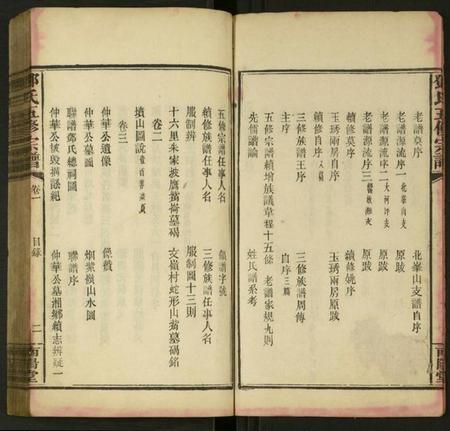 鄧氏五修宗譜
老譜莫序
北峯山支譜自序
老譜源流序一 北峯山支
原跋
老譜源流序二 大河坪支
原跋
老譜源流序三
原跋
續修莫序
續修姚序
玉琇兩房自序
玉琇兩房原跋
續修自序 八篇
三修族譜王序
三修族譜周傳
主序
自序 三篇
五修宗譜續增族議章程十五條
老譜家規九則
先儒譜論
姓氏譜系考
五修宗譜任事人名
領譜字號
續修族譜任事人名
三修族譜任事人名
服制辨
服制圖十三則
十六里朱家坡鷹
墓碣
文嶺村蛇形山
墓碣銘
卷二
墳山圖說
卷三
仲華公遺像
像贊
仲華公墓圖
烟紫
山水圖
聯譜鄧氏總祠圖
聯譜序
仲華公被毀搆訟紀
仲華公墓湘鄉續志辨疑一
鄧氏五修宗譜
卷一
目錄
二
南陽堂
南陽堂